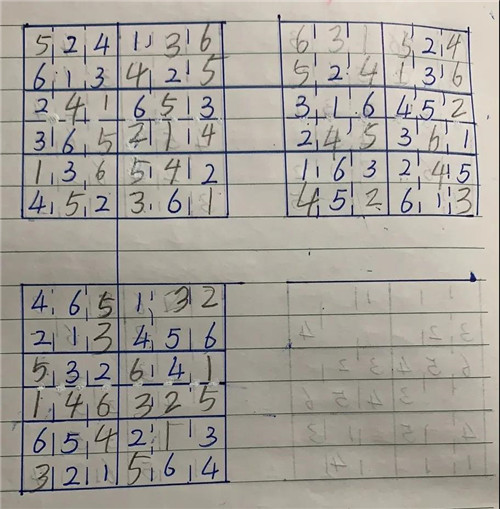 5 2 4 1 3 6
6 1 3 4 2 5
2 4 1 6 5 3
3 6 5 2 1 4
1 3 6 5 4 2
4 5 2 3 6 1
6 3 1 5 2 4
5 2 4 1 3 6
3 1 6 4 5 2
2 4 5 3 6 1
1 6 3 2 4 5
4 5 2 6 1 3
4 6 5 1 3 2
2 1 3 4 5 6
5 3 2 6 4 1
1 4 6 3 2 5
6 5 4 2 1 3
3 2 1 5 6 4